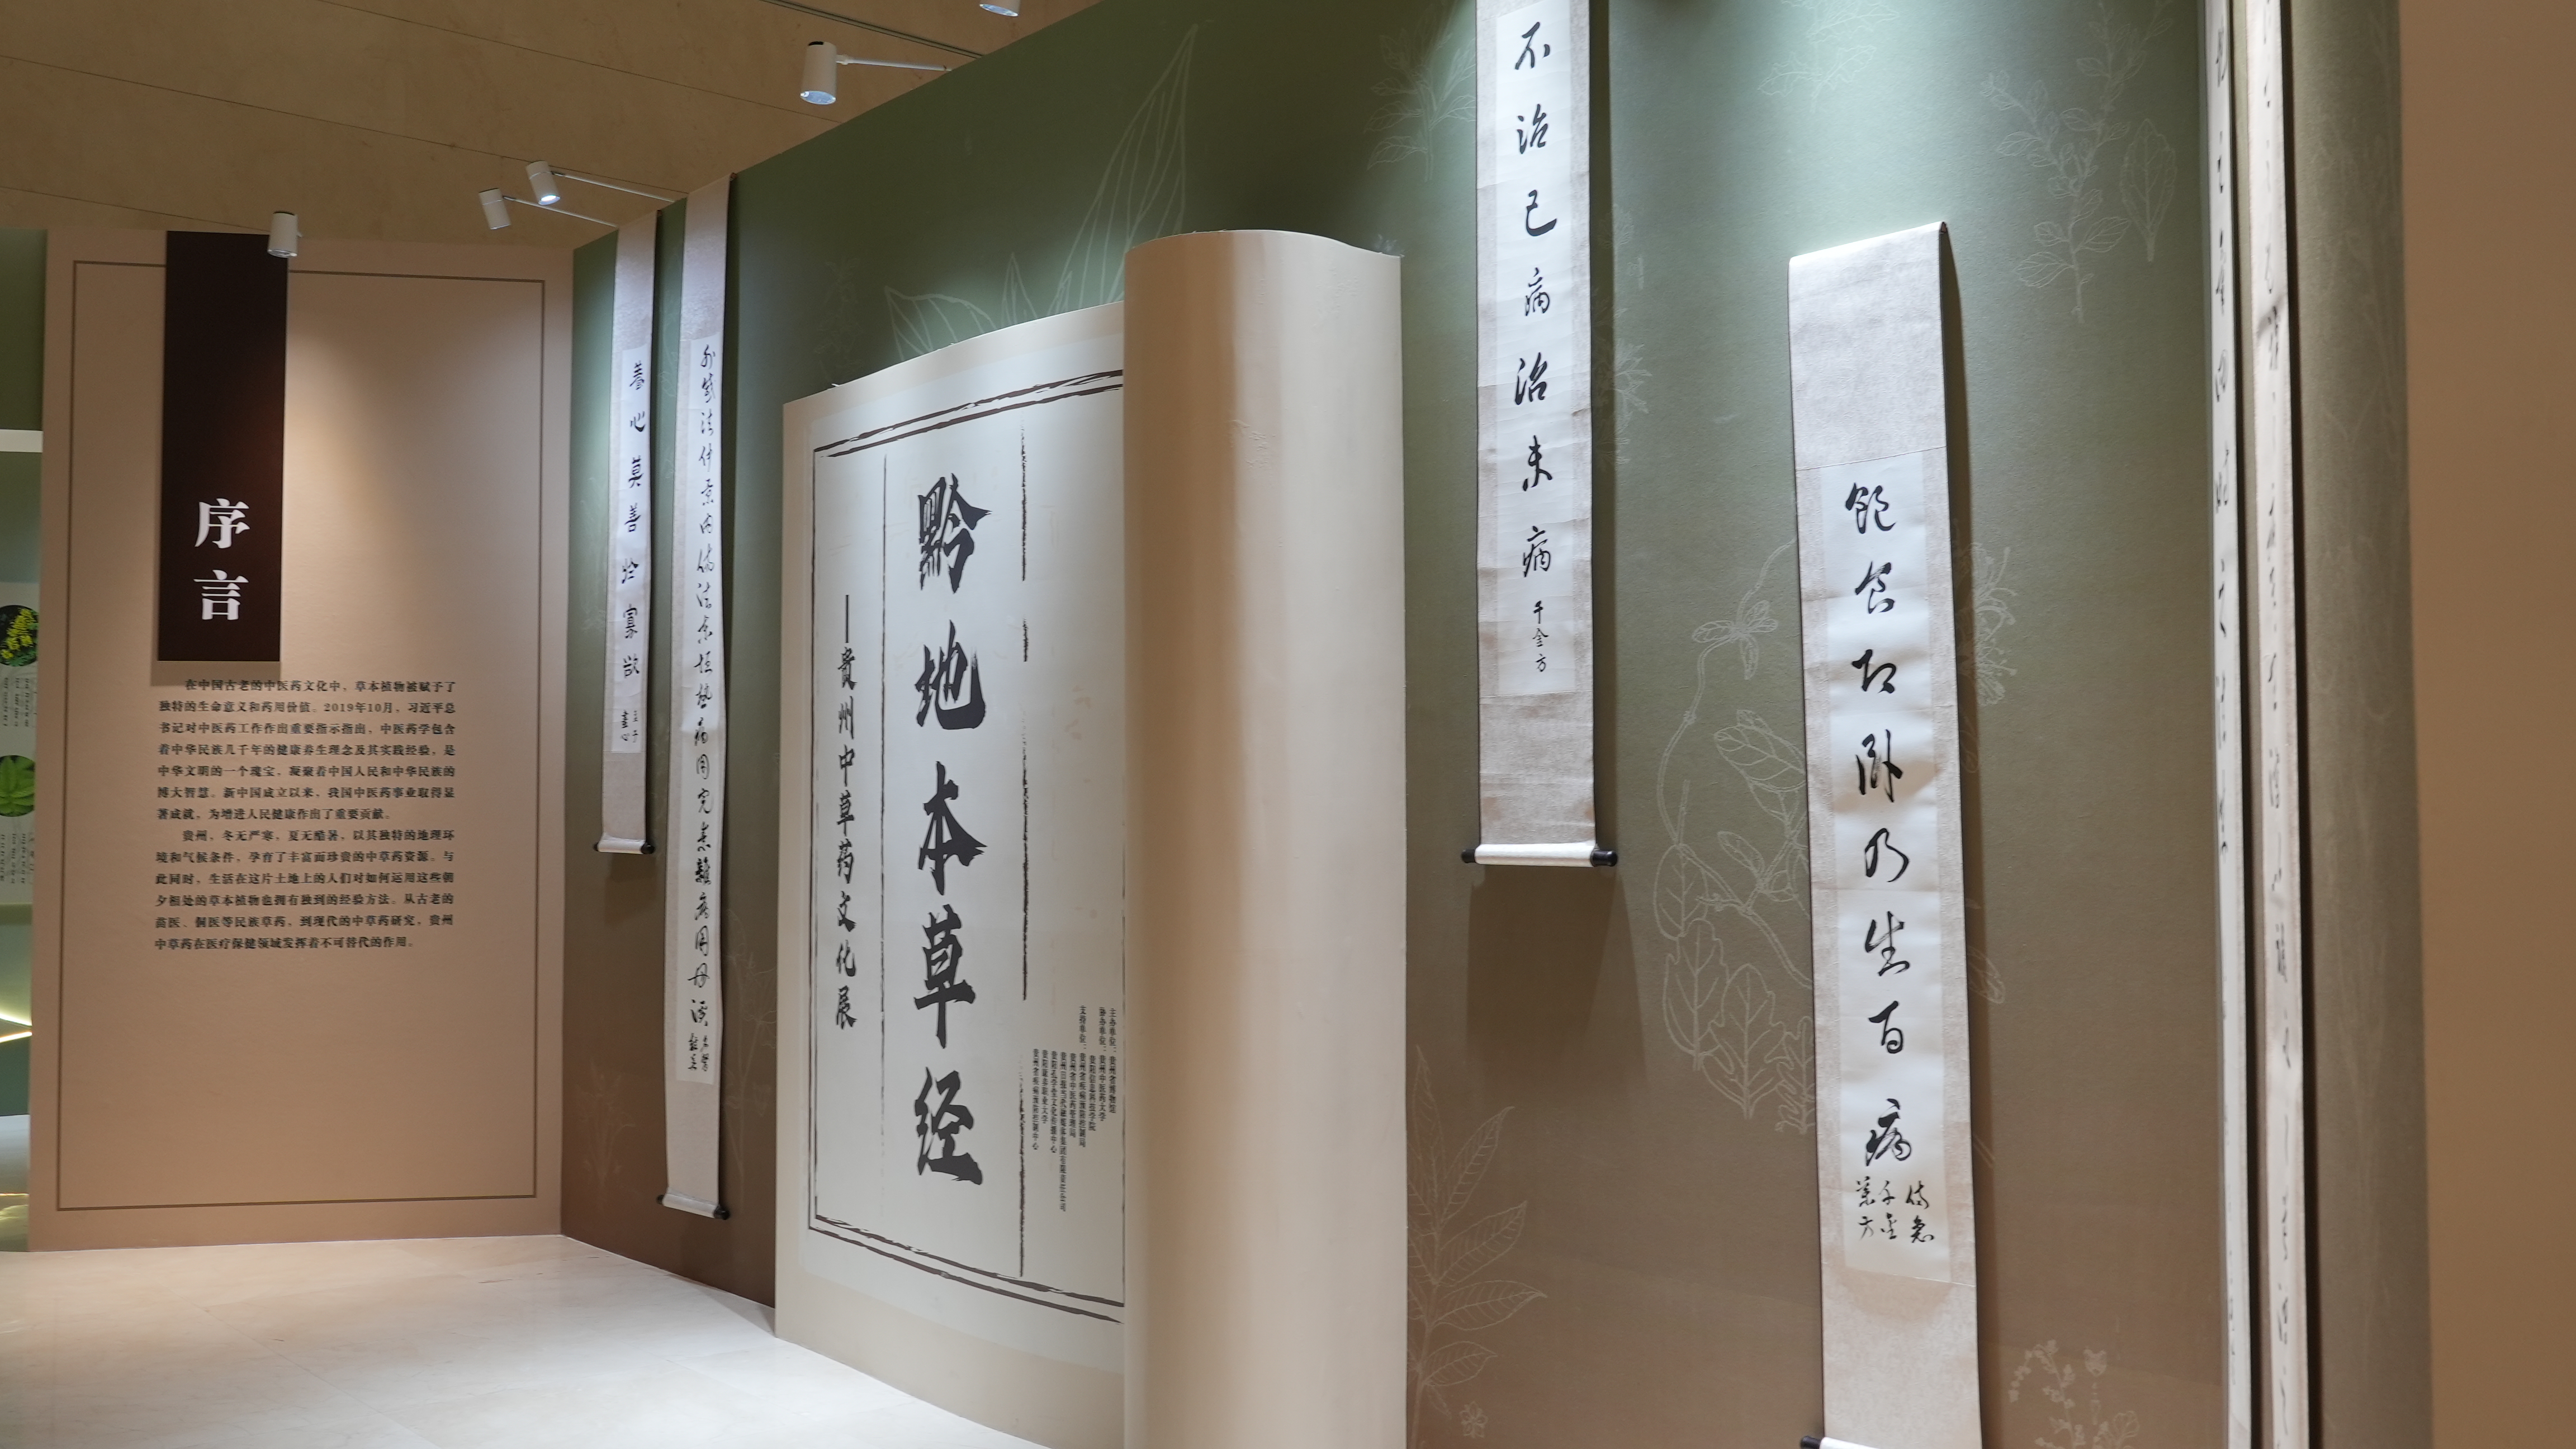 序言
在中国古老的中医药文化中，草本植物被赋予了
独特的生命意义和药用价值。2019年10月，习近平总
书记对中医药工作作出重要指示指出，中医药学包含
着中华民族几千年的健康养生理念及其实践经验，是
中华文明的一个瑰宝，凝聚着中国人民和中华民族的
博大智慧。新中国成立以来，我国中医药事业取得显
著成就，为增进人民健康作出了重要贡献。
贵州，冬无严寒，夏无酷暑，以其独特的地理环
境和气候条件，孕育了丰富而珍贵的中草药资源。与
此同时，生活在这片土地上的人们对如何运用这些朝
夕相处的草本植物也拥有独到的经验方法。从古老的
苗医、侗医等民族草药，到现代的中草药研究，贵州
中草药在医疗保健领域发挥着不可替代的作用。
养心莫善于寡欲
孟子
尽心
外感法仲景内伤法东垣热病用完素杂病用丹溪
黔地本草经
——贵州中草药文化展
主办单位：贵州省博物馆
协办单位：贵州中医药大学
支持单位：
不治已病治未病
千金方
饱食即卧乃生百病
备急
千金
要方